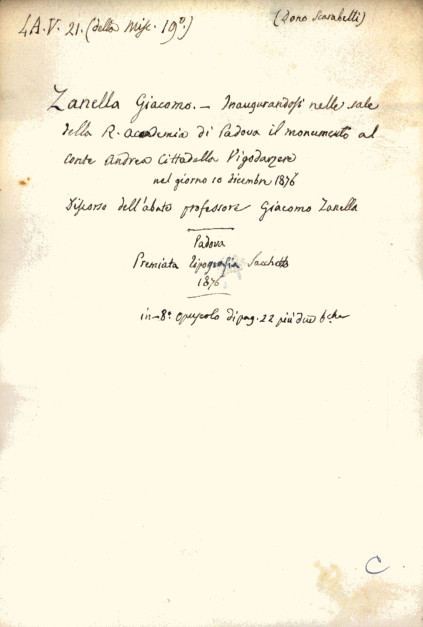 4A.V. 21. (della Misc. 19º.)
(Dono Scarabelli)
Zanella Giacomo. — Inaugurandosi nelle sale
della R. Accademia di Padova il monumento al
conte Andrea Cittadella Vigodarzere
nel giorno 10 dicembre 1876
Discorso dell'abate professore Giacomo Zanella
Padova
Premiata Tipografia Sacchetto
1876
in-8º. opuscolo di pag. 22 più due
C